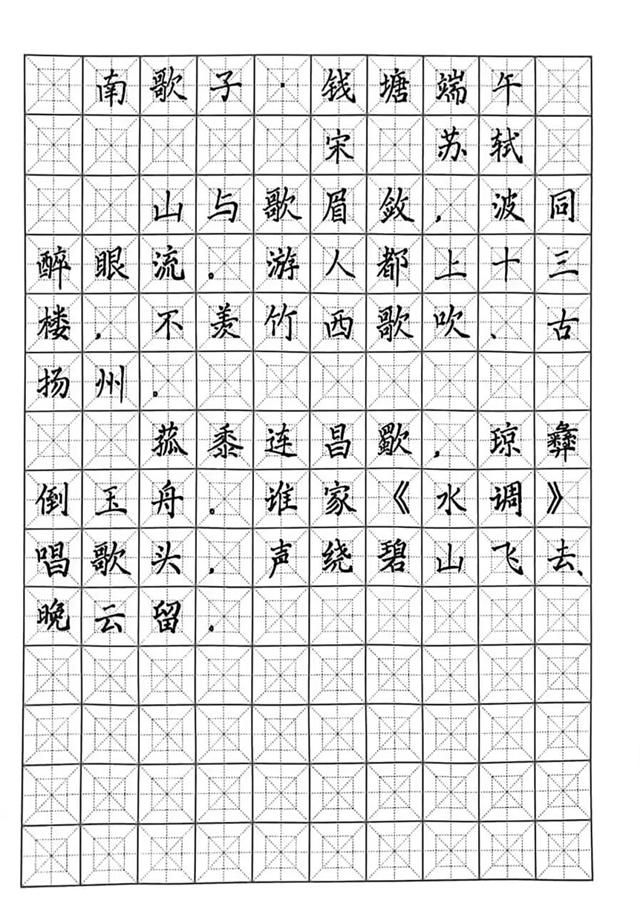 南歌子·钱塘端午
宋 苏轼
山与歌眉敛，波同
醉眼流。游人都上十三
楼，不羡竹西歌吹、古
扬州。
菰黍连昌歜，琼彝
倒玉舟。谁家《水调》
唱歌头，声绕碧山飞去、
晚云留。